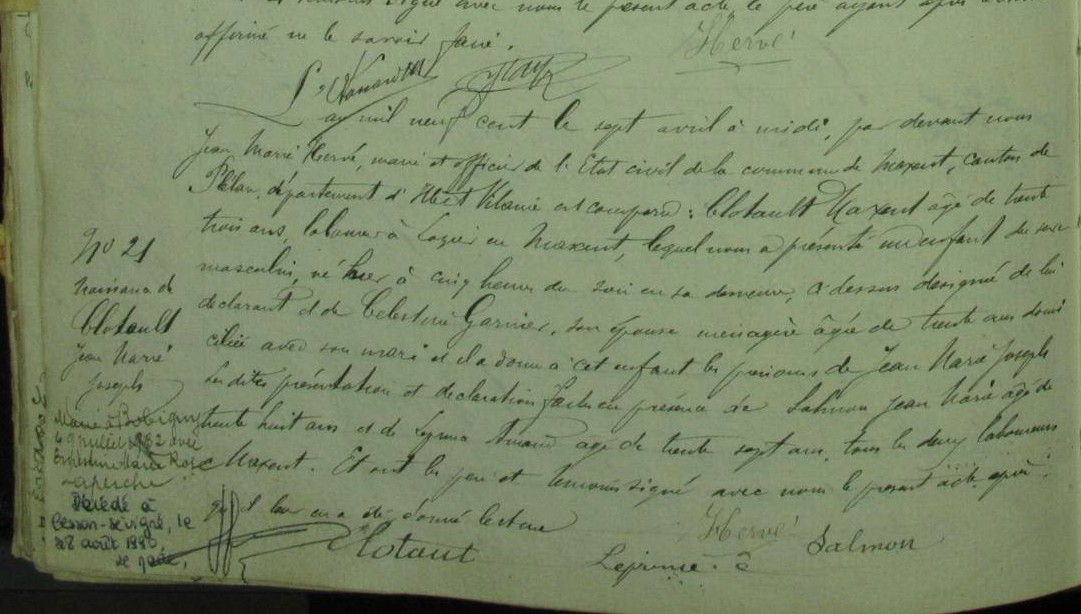 signé avec nous le présent acte, le père ayant
affirmé ne le savoir faire.
Hervé
an mil neuf cent le sept avril à midi, par devant nous
Jean Marie Hervé, maire et officier de l'Etat civil de la commune de Maxent, canton de
Plélan, département d'Ille et Vilaine est comparu : Clotault Maxent âgé de trente
trois ans, laboureur à en Maxent, lequel nous a présenté un enfant du sexe
masculin, né hier à cinq heures du soir en sa demeure, ci dessus désignée de lui
déclarant et de Célestine Garnier, son épouse ménagère âgée de trente ans domi
ciliée avec son mari et il a donné à cet enfant les prénoms de Jean Marie Joseph
Les dites présentation et déclaration faites en présence de Salmon Jean Marie âgé de
trente huit ans et de Armand âgé de trente sept ans, tous les deux laboureurs
Maxent. Et ont les père et témoins signé avec nous le présent acte après
qu'il leur en a été donné lecture
Clotaut
Hervé
Salmon
No 21
Naissance de
Clotault
Jean Marie
Joseph
Marié à Bobigny
juillet 1932 avec
Ernestine Marie Rose
Laperche
Décédé à
Cesson-Sévigné, le
août 1980